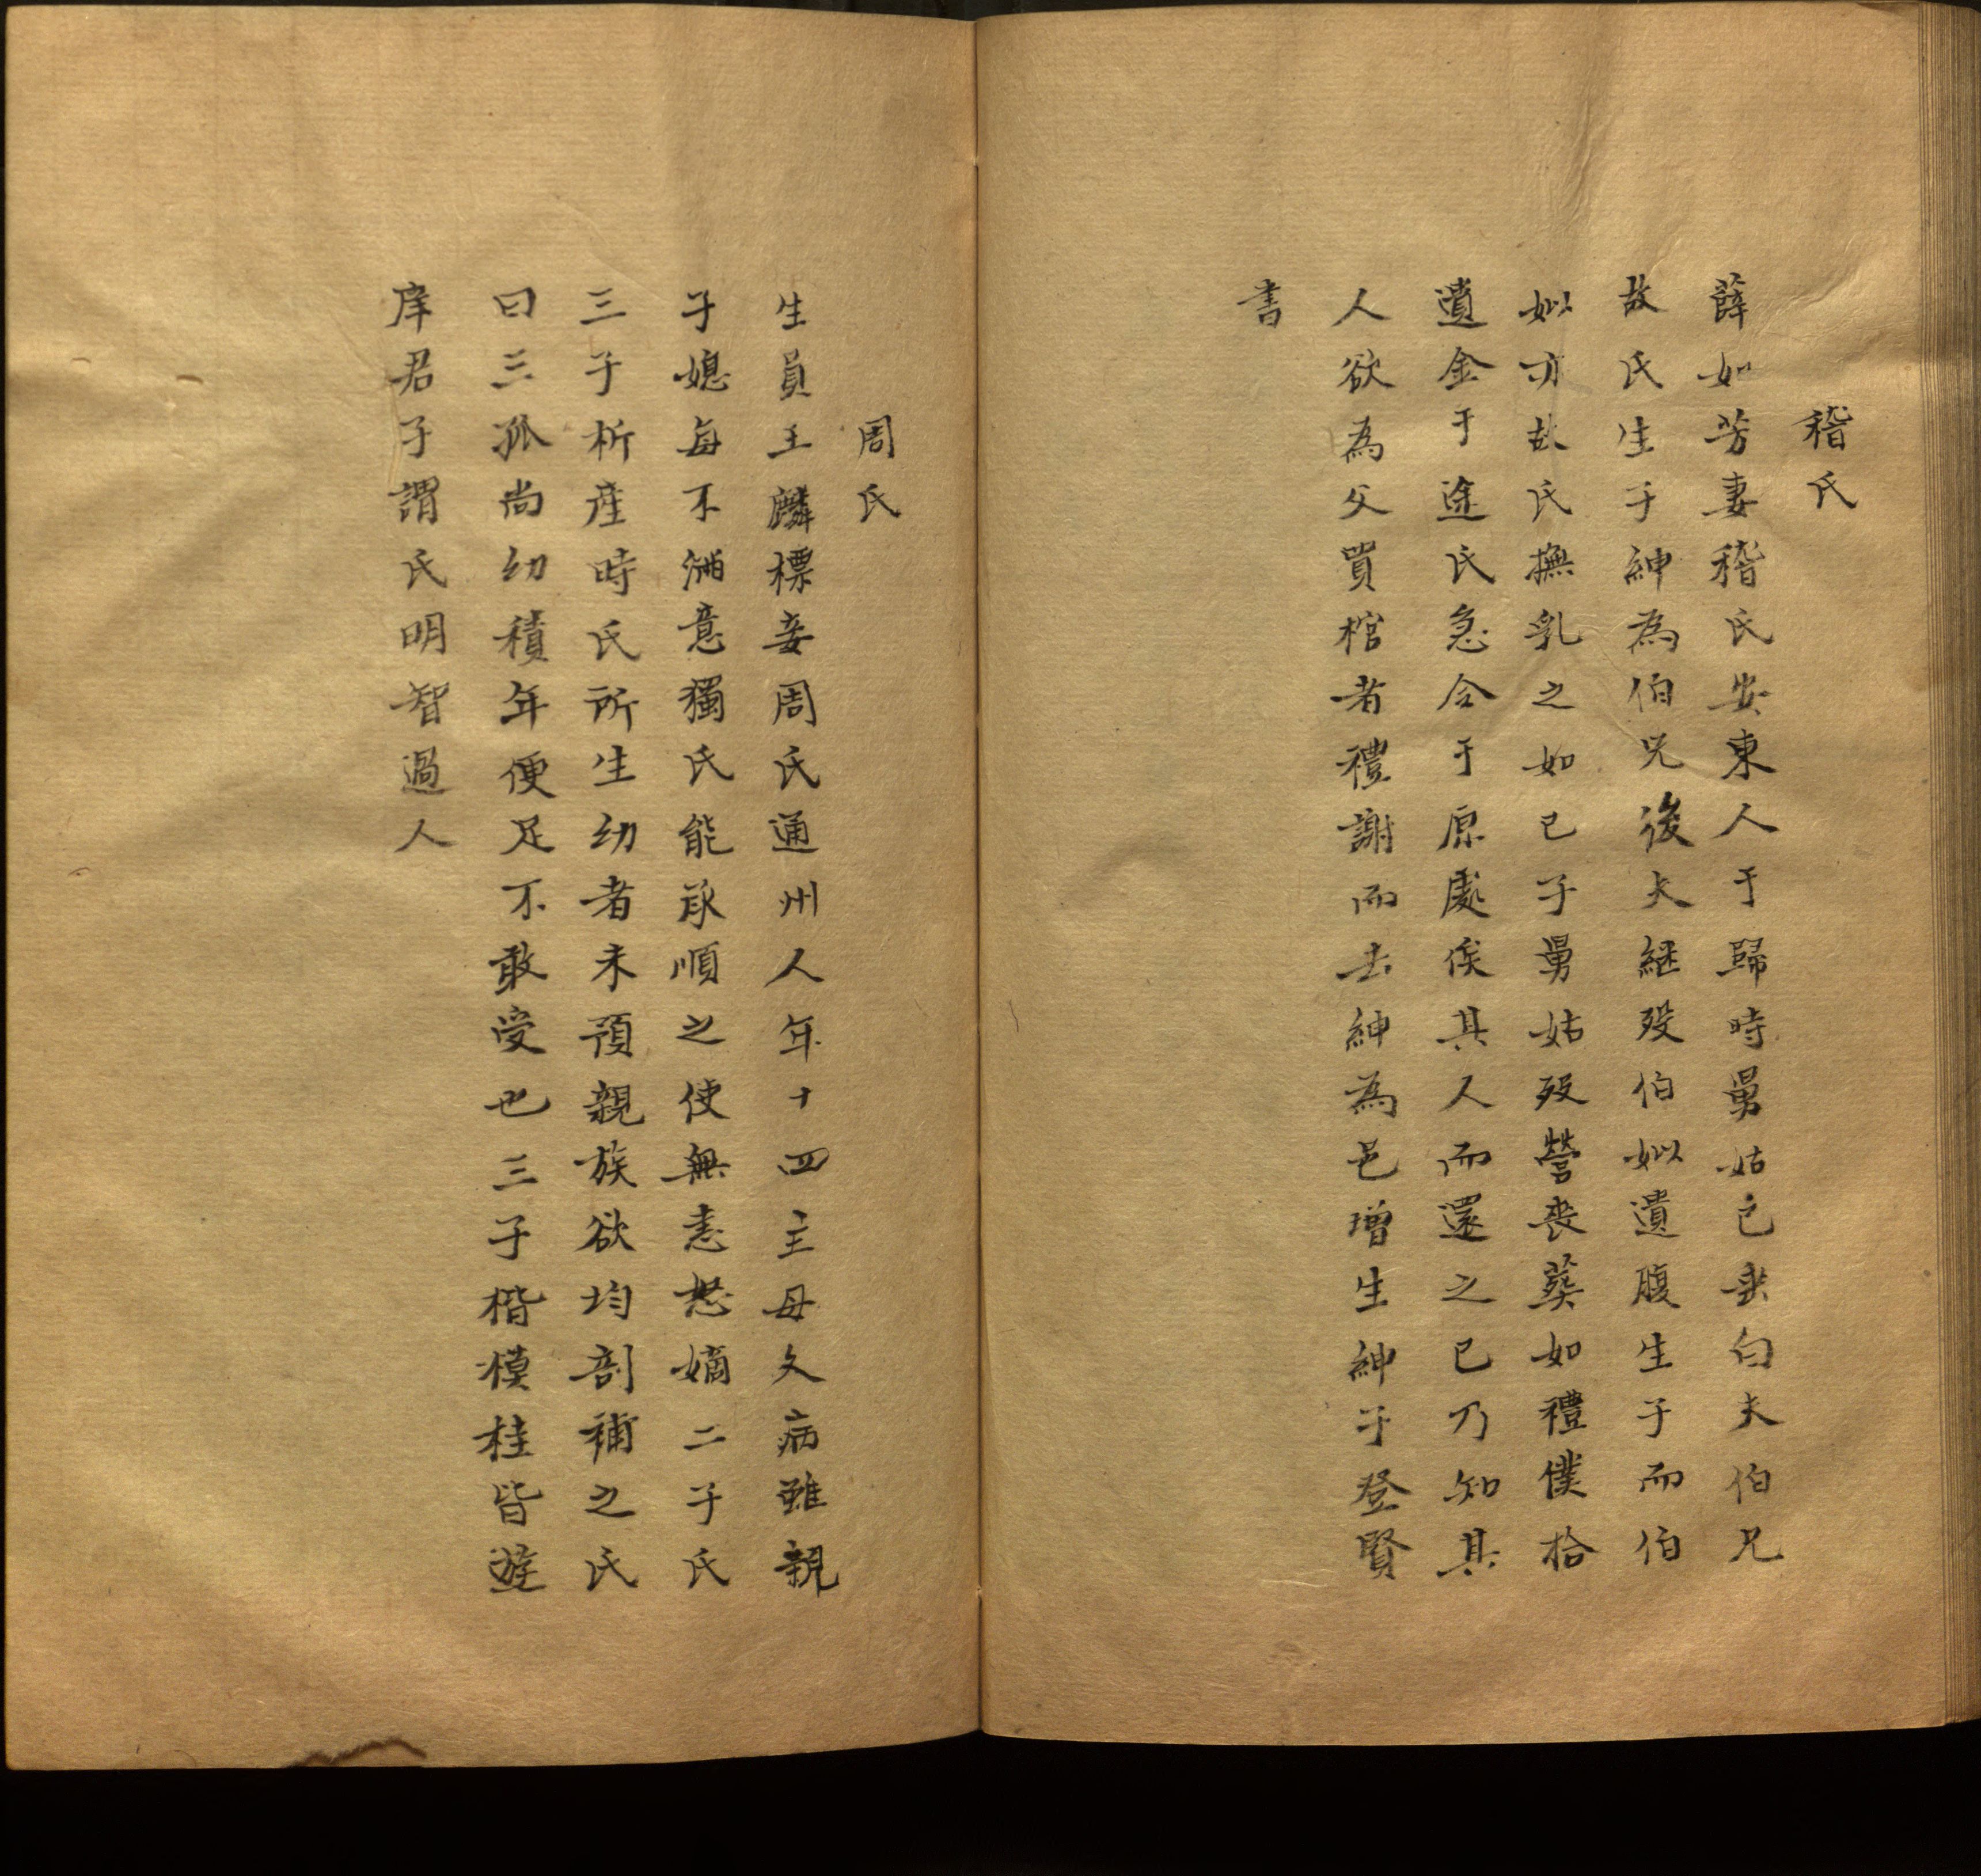 稽氏
薛如芳妻稽氏安東人于歸時舅姑已垂白夫伯兄
故氏生子紳為伯兄後夫継歿伯姒遺腹生子而伯
姒亦故氏撫乳之如已子舅姑歿營喪葬如禮僕拾
遺金于途氏急令于原處俟其人而還之已乃知其
人欲為父買棺者禮謝而去紳為邑增生紳子登賢
書
周氏
生員王麟標妾周氏通州人年十四主母久病雖親
子媳每不滿意獨氏能承順之使無恚怒嫡二子氏
三子析產時氏所生幼者未預親族欲均剖補之氏
曰三孤尚幼積年便足不敢受也三子楷模桂皆遊
庠君子謂氏明智過人